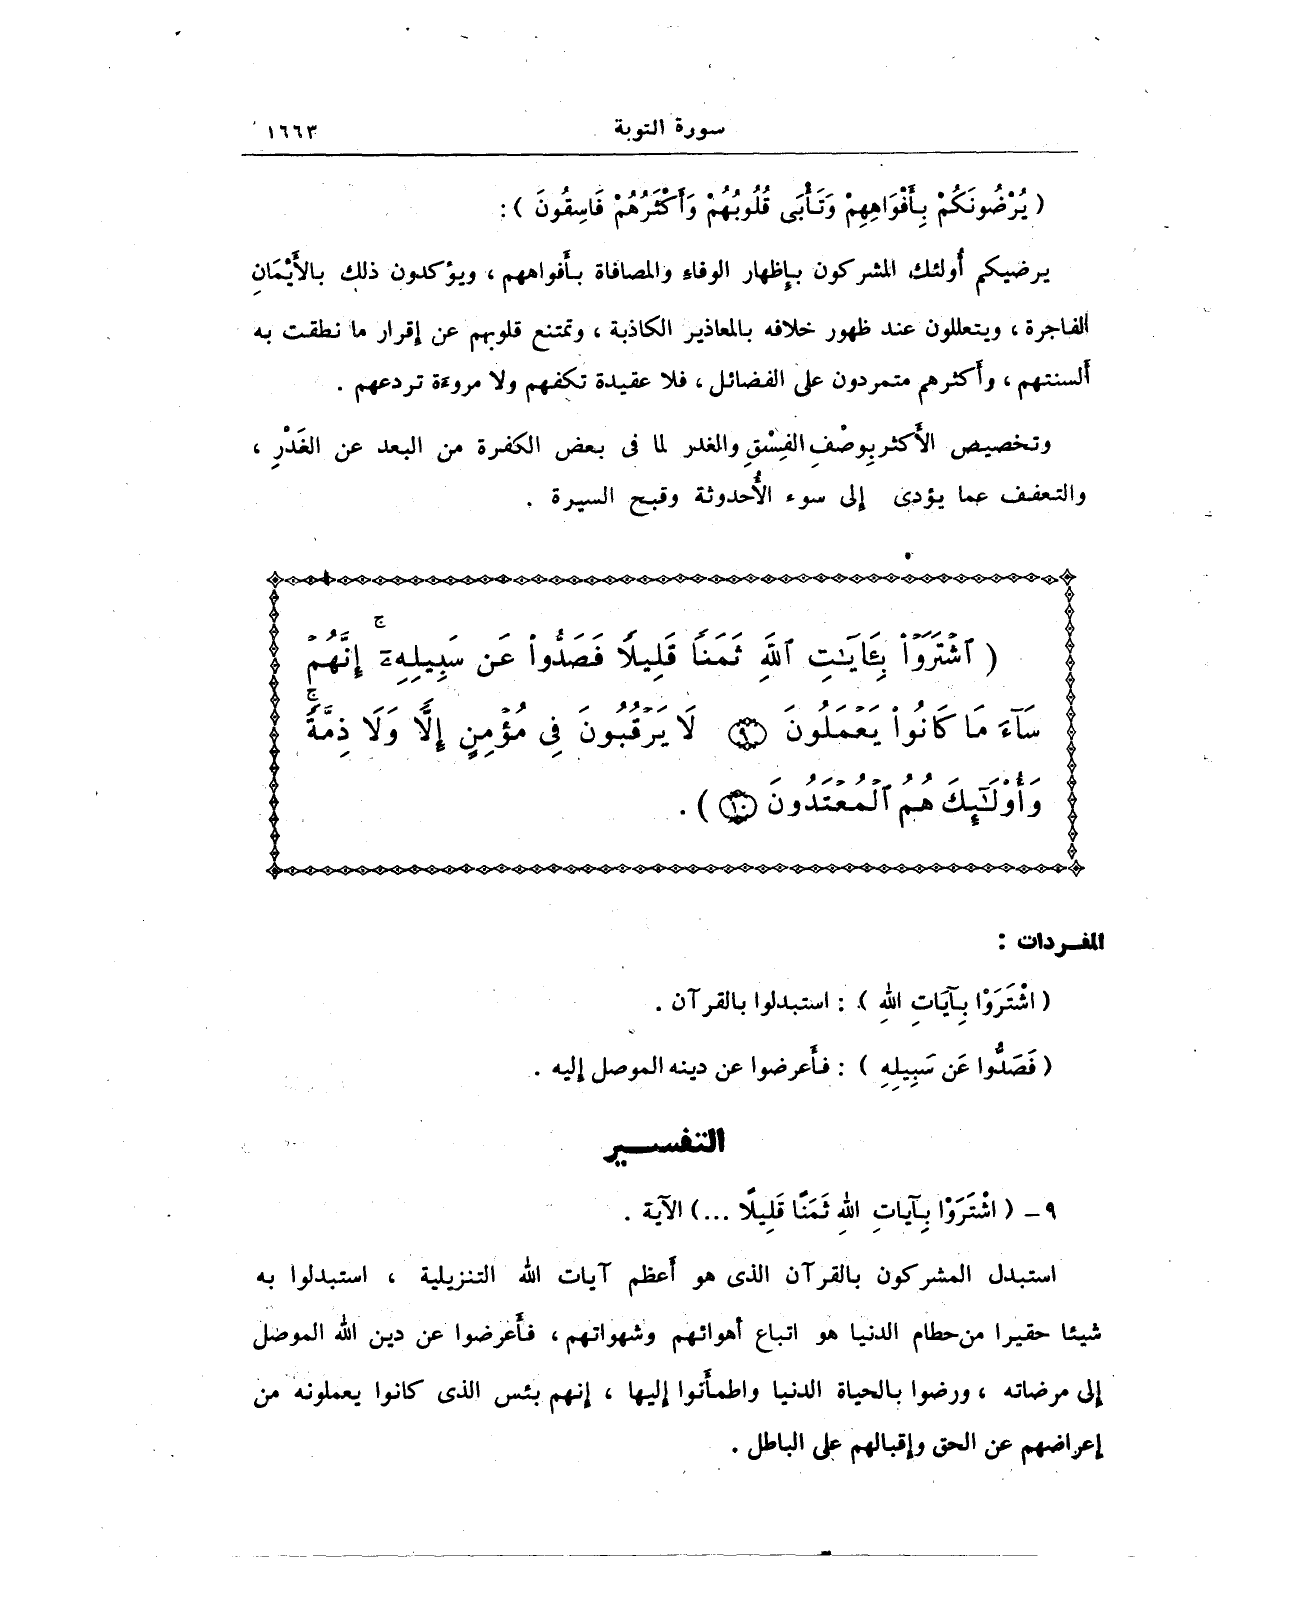 سورة التوبة ١٦٦٣
( يُرْضُونَكُمْ بِأَفْوَاهِهِمْ وَتَأْبَى قُلُوبُهُمْ وَأَكْثَرُهُمْ فَاسِقُونَ ) :
يرضيكم أُولئك المشركون بإظهار الوفاء والمصافاة بأفواههم ، ويؤكدون ذلك بالأَيْمَانِ
الفاجرة ، ويتعللون عند ظهور خلافه بالمعاذير الكاذبة ، وتمتنع قلوبهم عن إقرار ما نطقت به
ألسنتهم ، وأكثرهم متمردون على الفضائل ، فلا عقيدة تكفهم ولا مروءة تردعهم .
وتخصيص الأَكثر بِوصْفِ الفِسْقِ والغدر لما فى بعض الكفرة من البعد عن الغَدْرِ ،
والتعفف عما يؤدى إلى سوء الأُحدوثة وقبح السيرة .
( ٱشْتَرَوْا۟ بِـَٔايَـٰتِ ٱللَّهِ ثَمَنًا قَلِيلًا فَصَدُّوا۟ عَن سَبِيلِهِۦٓ ۚ إِنَّهُمْ
سَآءَ مَا كَانُوا۟ يَعْمَلُونَ ٩ لَا يَرْقُبُونَ فِى مُؤْمِنٍ إِلًّا وَلَا ذِمَّةً ۚ
وَأُو۟لَـٰٓئِكَ هُمُ ٱلْمُعْتَدُونَ ١٠ ) .
المفـردات :
( اشْتَرَوْا بِآيَاتِ اللهِ ) : استبدلوا بالقرآن .
( فَصَدُّوا عَن سَبِيلِهِ ) : فأعرضوا عن دينه الموصل إليه .
التفسـير
٩ - ( اشْتَرَوْا بِآيَاتِ اللهِ ثَمَنًا قَلِيلًا ... ) الآية .
استبدل المشركون بالقرآن الذى هو أعظم آيات الله التنزيلية ، استبدلوا به
شيئا حقيرا من حطام الدنيا هو اتباع أهوائهم وشهواتهم ، فأعرضوا عن دين الله الموصل
إلى مرضاته ، ورضوا بالحياة الدنيا واطمأنوا إليها ، إنهم بئس الذى كانوا يعملونه من
إعراضهم عن الحق وإقبالهم على الباطل .